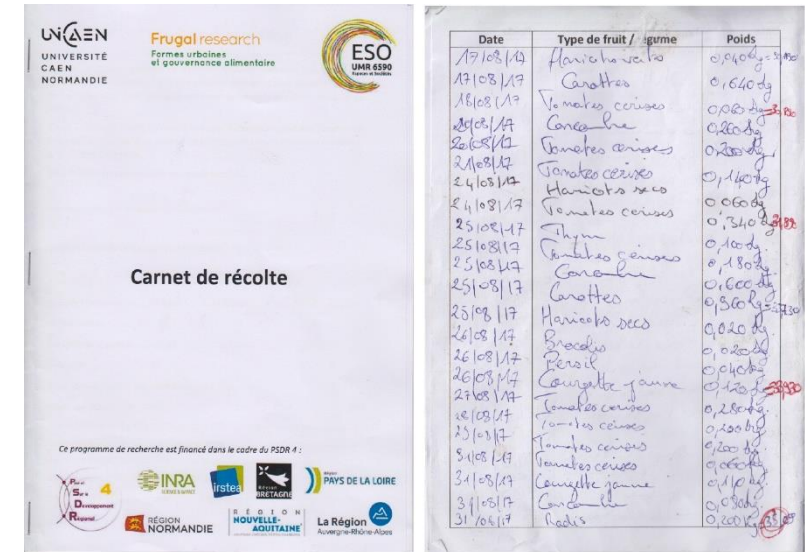 UNICAEN
UNIVERSITÉ
CAEN
NORMANDIE
Frugal research
Formes urbaines
et gouvernance alimentaire
ESO
UMR 6590
Carnet de récolte
Ce programme de recherche est financé dans le cadre du PSDR 4 :
4
INRA
irstea
BRETAGNE
PAYS DE LA LOIRE
RÉGION
NORMANDIE
RÉGION
NOUVELLE-
AQUITAINE
La Région
Auvergne-Rhône-Alpes
Date Type de fruit / légume Poids
17/08/17 Haricots verts 0,040kg
17/08/17 Carottes 0,640kg
18/08/17 Tomates cerises 0,060kg
20/08/17 Concombre 0,260kg
20/08/17 Tomates cerises 0,200kg
21/08/17 Tomates cerises 0,140kg
24/08/17 Haricots secs 0,060kg
24/08/17 Tomates cerises 0,340kg
25/08/17 Thym 0,100kg
25/08/17 Tomates cerises 0,180kg
25/08/17 Concombre 0,600kg
25/08/17 Carottes 0,360kg
25/08/17 Haricots secs 0,020kg
26/08/17 Brocolis 0,020kg
26/08/17 Persil 0,040kg
26/08/17 Courgette jaune 0,120kg
27/08/17 Tomates cerises 0,280kg
28/08/17 Tomates cerises 0,200kg
29/08/17 Tomates cerises 0,200kg
31/08/17 Tomates cerises 0,060kg
31/08/17 Courgette jaune 0,110kg
31/08/17 Concombre 0,080kg
31/08/17 Radis 0,200kg